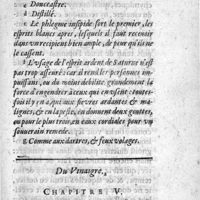 c Douceastre.
d Distillé.
e Le phlegme insipide sort le premier, les
esprits blancs apres, lesquels il faut recevoir
dans un recipient bien ample, de peur qu'ils ne
le cassent.
f L'usage de l'esprit ardent de Saturne n'est
pas trop asseuré: car il rend les personnes im-
puissans, ou du moins debilite grandement la
force d'engendrer à ceux qui en usent: toute-
fois il y en a qui aux fievres ardantes & ma-
lignes, & en la peste, en donnent deux gouttes,
ou pour le plus trois, en eaux cordiales pour un
souverain remede.
g Comme aux dartres, & feux volages.
Du Vinaigre.
CHAPITRE V.